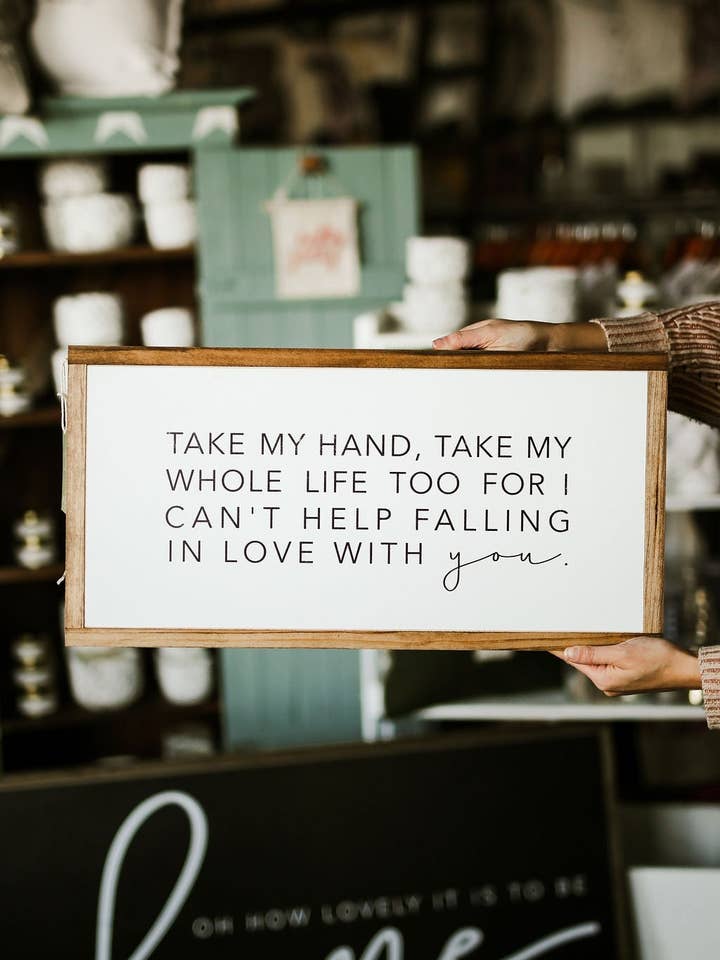 TAKE MY HAND, TAKE MY
WHOLE LIFE TOO FOR I
CAN'T HELP FALLING
IN LOVE WITH you.
OH HOW LOVELY IT IS TO BE